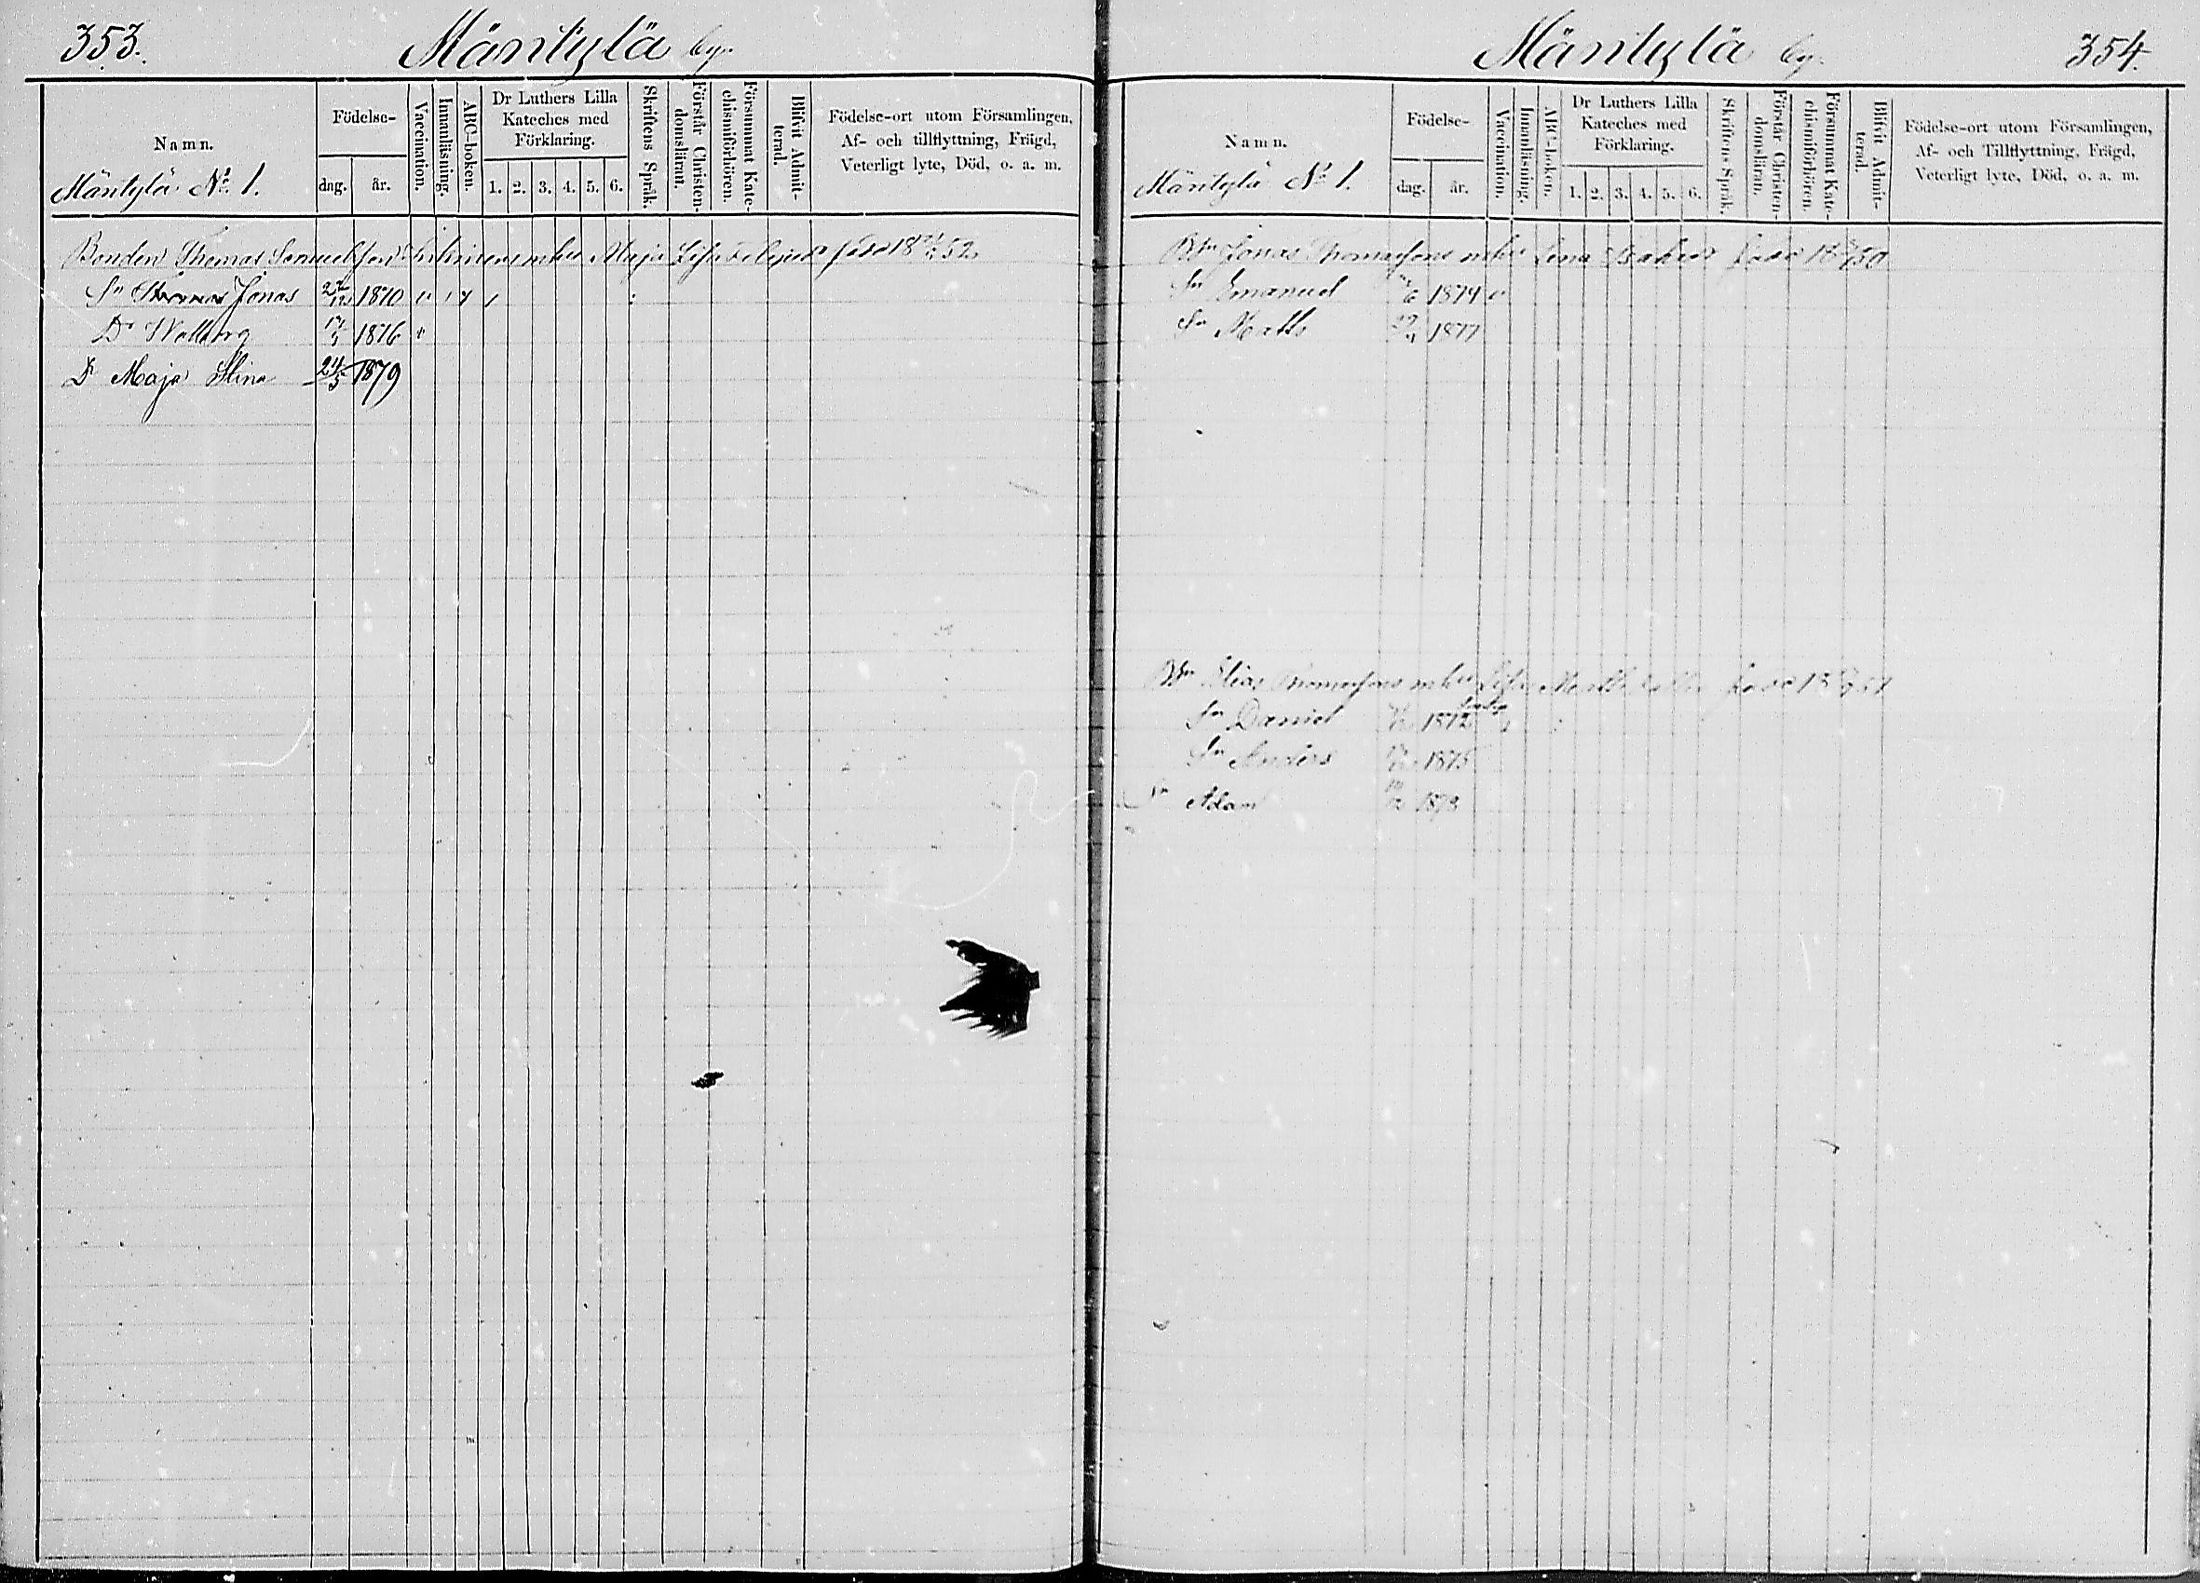 353.
Mäntylä by.
Namn.
Mäntylä No. 1.
Födelse-
dag.
år.
Vaccination.
Innanläsning.
ABC-boken.
Dr Luthers Lilla
Kateches med
Förklaring.
1. 2. 3. 4. 5. 6.
Skriftens Språk.
Förstår Christen-
domsläran.
Försummat Kate-
chismiförhören.
Blifvit Admit-
terad.
Födelse-ort utom Församlingen,
Af- och tillflyttning, Frägd,
Veterligt lyte, Död, o. a. m.
Bonden Thomas Samuelsson mhu Maja Lisa född 18 52
Sn Thomas Jonas 1870
Dr Walborg 1876
Dr Maja Stina 1879
Mäntylä by.
354.
Namn.
Mäntylä No. 1.
Födelse-
dag.
år.
Vaccination.
Innanläsning.
ABC-boken.
Dr Luthers Lilla
Kateches med
Förklaring.
1. 2. 3. 4. 5. 6.
Skriftens Språk.
Förstår Christen-
domsläran.
Försummat Kate-
chismiförhören.
Blifvit Admit-
terad.
Födelse-ort utom Församlingen,
Af- och Tillflyttning, Frägd,
Veterligt lyte, Död, o. a. m.
Jonas Thomasson mhu Lena 50
Sn Emanuel 1874
Sn Matts 1877
Elias Thomasson mhu Lisa
Sn Daniel 1872
Sn Anders 1875
Sn Adam 1878